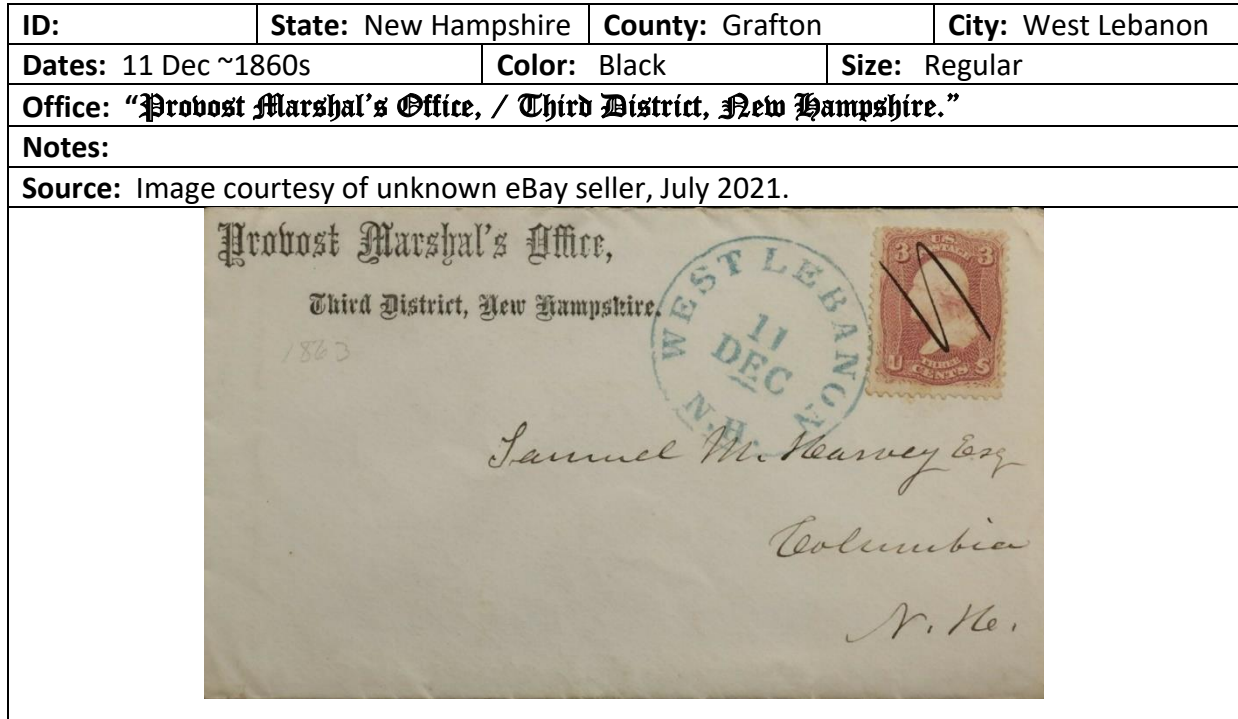 ID: State: New Hampshire County: Grafton City: West Lebanon
Dates: 11 Dec ~1860s Color: Black Size: Regular
Office: "Provost Marshal's Office, / Third District, New Hampshire."
Notes:
Source: Image courtesy of unknown eBay seller, July 2021.
Provost Marshal's Office,
Third District, New Hampshire.
1863
WEST LEBANON
11
DEC
N.H.
U.S.
POSTAGE
3 3
U S
THREE
CENTS
Samuel M. Harvey Esq
Columbia
N. H.